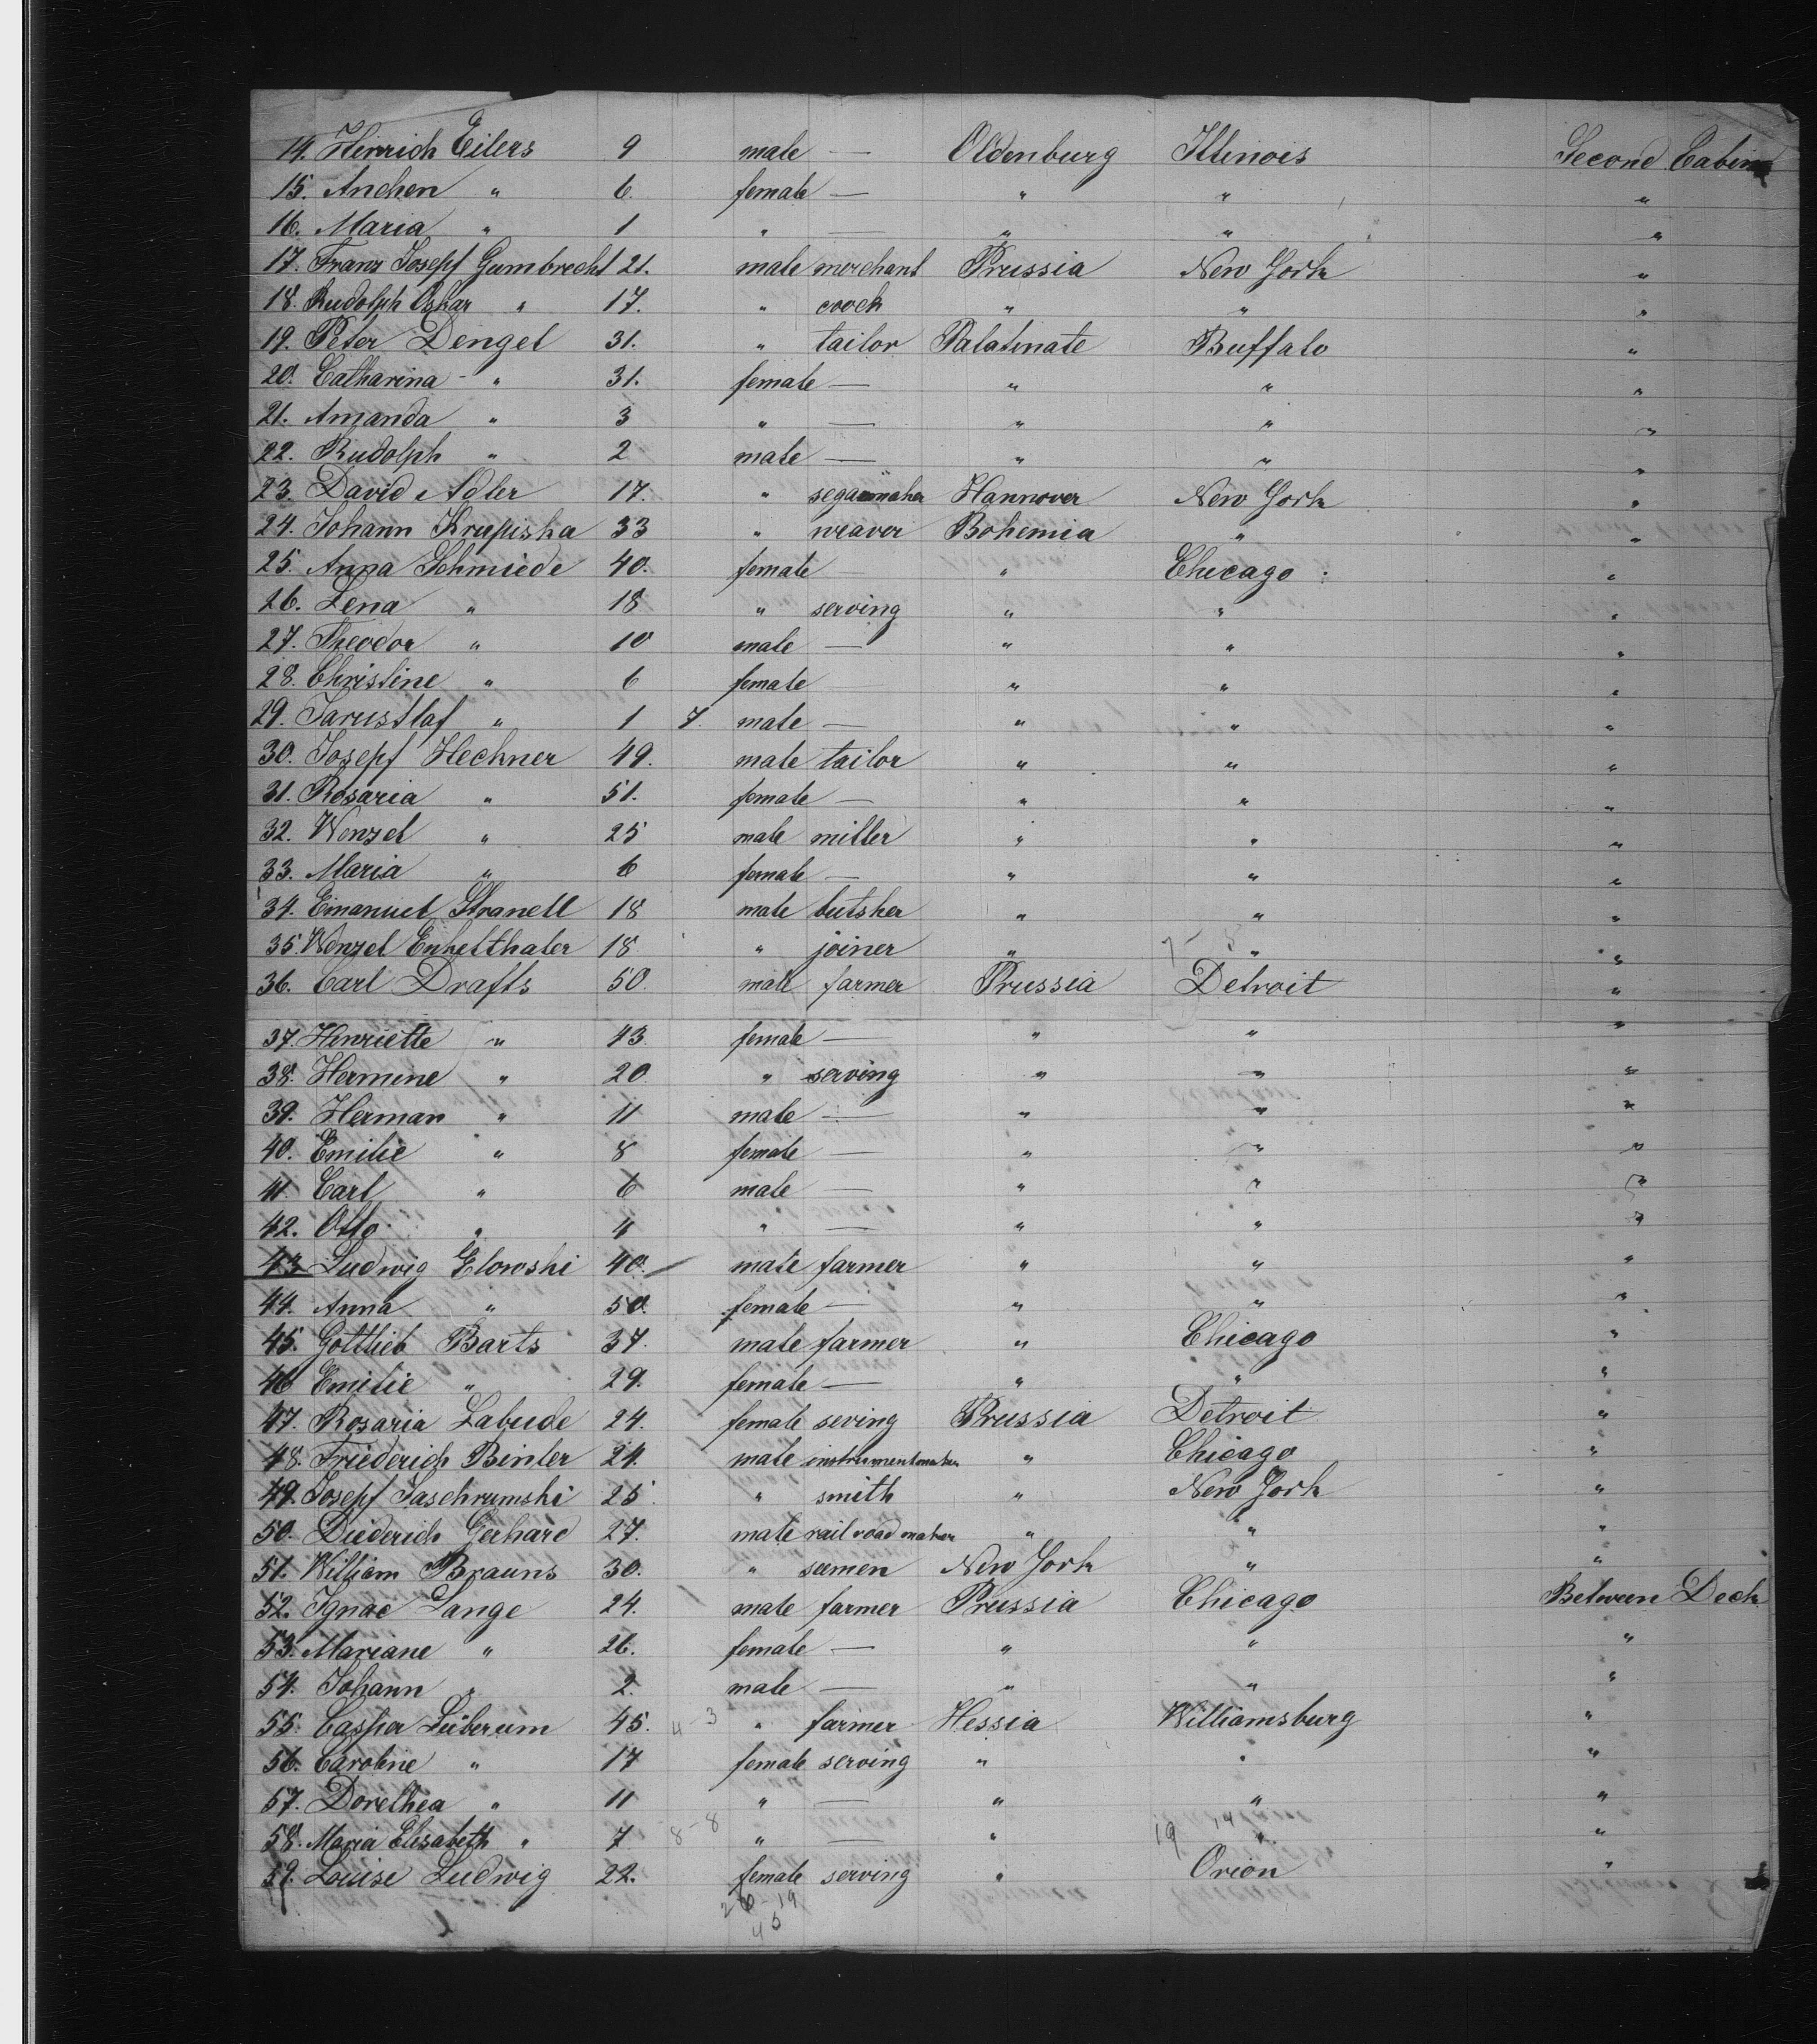 14. Hinrich Eilers 9 male — Oldenburg Illinois Second Cabin
15. Anchen " 6. female — " " "
16. Maria " 1 " — " " "
17. Franz Josepf Gumbrecht 21. male merchant Prussia New York "
18. Rudolph Oskar " 17. " coock " " "
19. Peter Dengel 31. " tailor Palatinate Buffalo "
20. Catharina " 31. female — " " "
21. Amanda " 3 " — " " "
22. Rudolph " 2 male — " " "
23. David Adler 17. " segarmaker Hannover New York "
24. Johann Krupiska 33 " weaver Bohemia " "
25. Anna Schmiede 40. female — " Chicago "
26. Lena " 18 " serving " " "
27. Theodor " 10 male — " " "
28. Christine " 6 female " " "
29. Jarustlaf " 1 7. male — " " "
30. Josepf Hechner 49. male tailor " " "
31. Rosaria " 51. female — " " "
32. Wenzel " 25 male miller " " "
33. Maria " 6 female — " " "
34. Emanuel Stranell 18 male butsher " " "
35. Wenzel Enkelthaler 18. " joiner " " "
36. Carl Drafts 50. male farmer Prussia Detroit "
37. Henriette " 43. female — " " "
38. Hermine " 20. " serving " " "
39. Herman " 11 male — " " "
40. Emilie " 8 female — " " "
41. Carl " 6 male — " " "
42. Otto " 4 " — " " "
43 Ludwig Elowski 40. male farmer " " "
44. Anna " 50. female — " " "
45. Gottlieb Barts 37. male farmer " Chicago "
46 Emilie " 29. female — " " "
47. Rosaria Labude 24. female seving Prussia Detroit "
48. Friederich Binler 24. male instrumentmaker " Chicago "
49. Josepf Jaschrumski 25. " smith " New York "
50. Diederich Gerhard 27. male rail road maker " " "
51. William Brauns 30. " seemen New York " "
52. Ignac Lange 24. male farmer Prussia Chicago Between Deck
53. Mariane " 26. female — " " "
54. Johann " 2. male — " " "
55. Casper Lüberum 45. 4-3 " farmer Hessia Williamsburg "
56. Caroline " 17 female serving " " "
57. Dorethea " 11 " — " " "
58. Maria Elisabeth " 7 8-8 " — " 19 14 " "
59. Louise Ludwig 22. female serving " Orion "
26-19
45